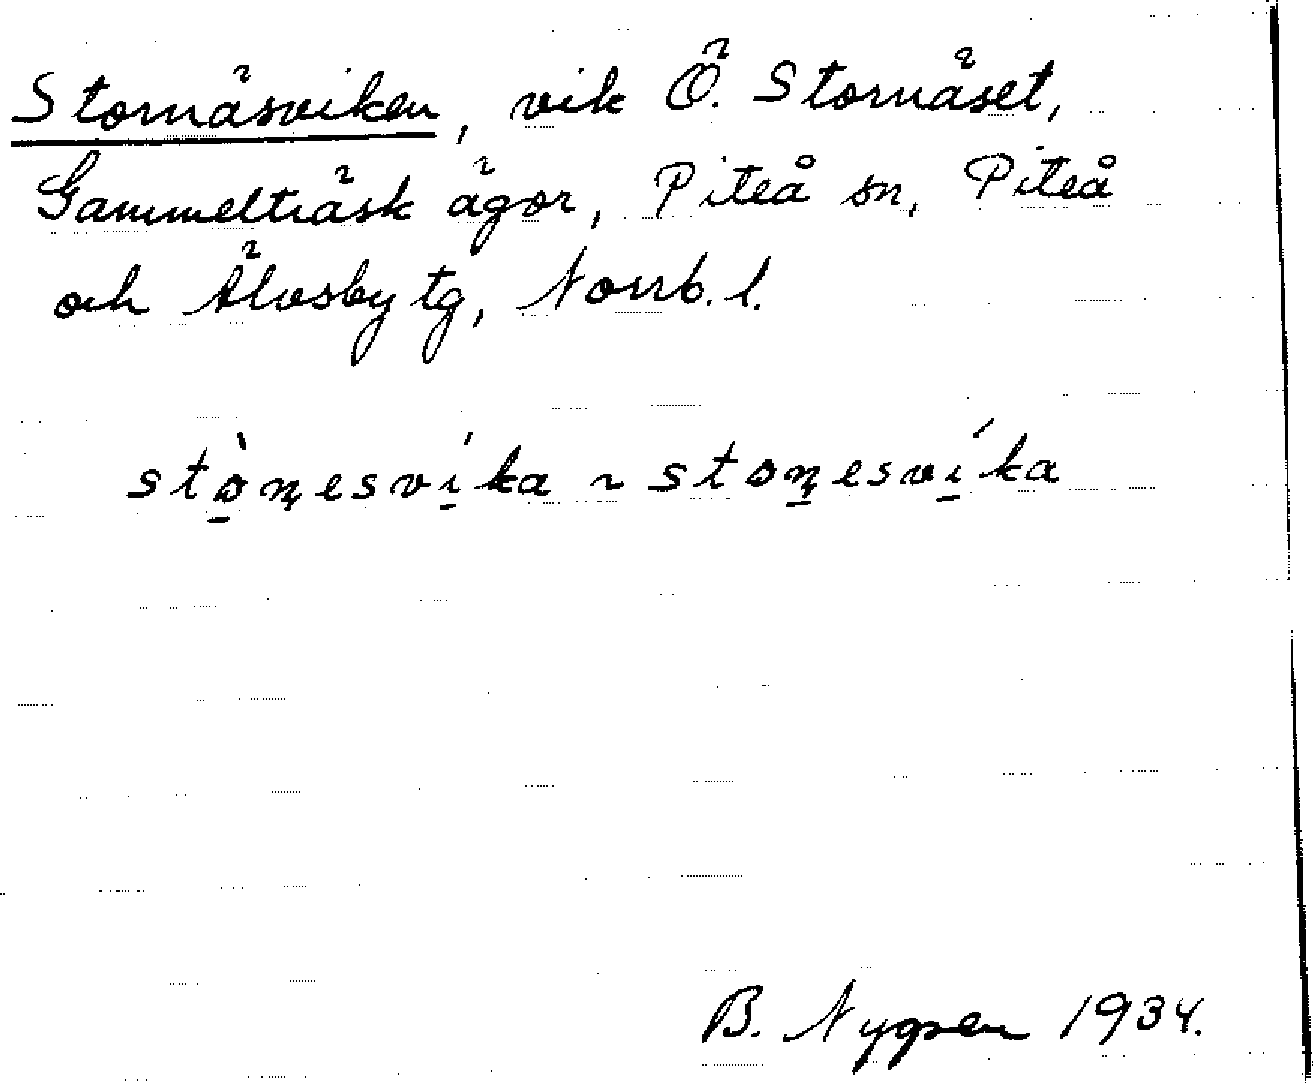 Stornäsviken, vik Ö. Stornäset,
Gammelträsk ägor, Piteå sn, Piteå
och Älvsby tg, Norrb. l.
stò̱ṇesví̱ka ~ stoṇ̱esví̱ka
B. Nygren 1934.